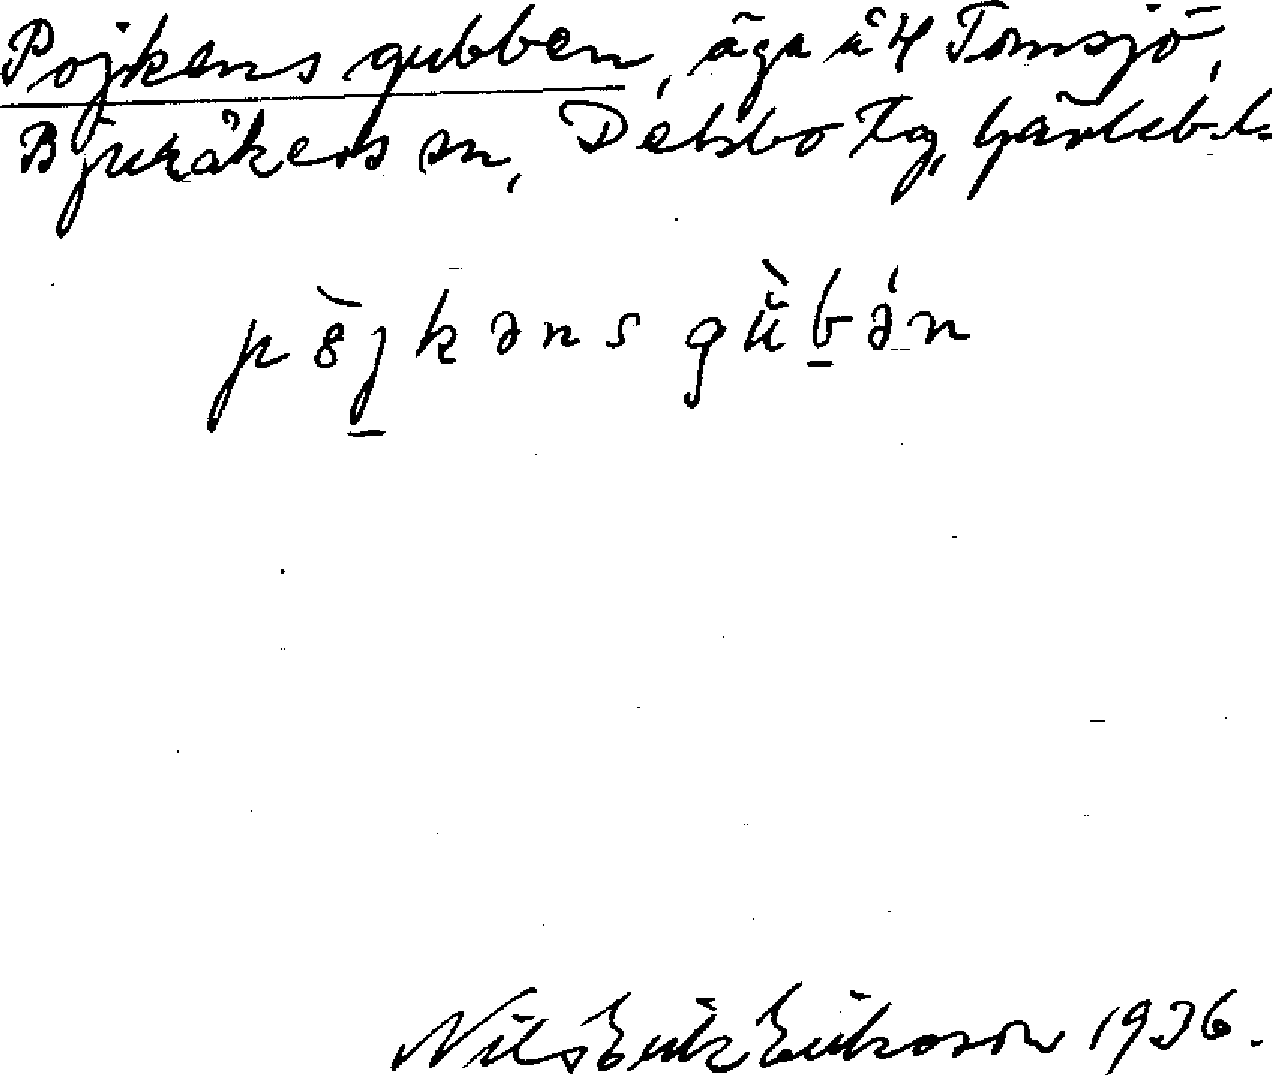 Pojkens gubben, äga å Tomsjö,
Bjuråkers sn, Delsbo tg, Gävleb. l.
pòjkəns gùbən
Nils Erik Eriksson 1936.